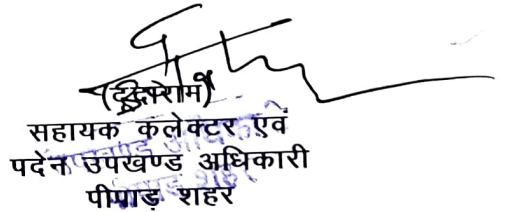 सहायक कलेक्टर एवं
पदेन उपखण्ड अधिकारी
पीपाड़ शहर